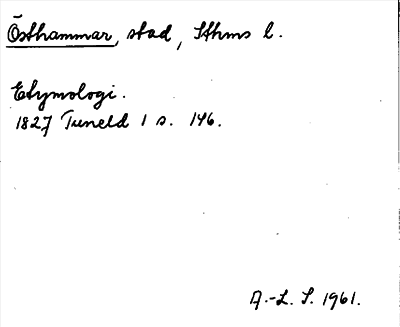 Östhammar, stad, Sthms l.
Etymologi.
1827 Tuneld 1 s. 146.
A.-L. S. 1961.